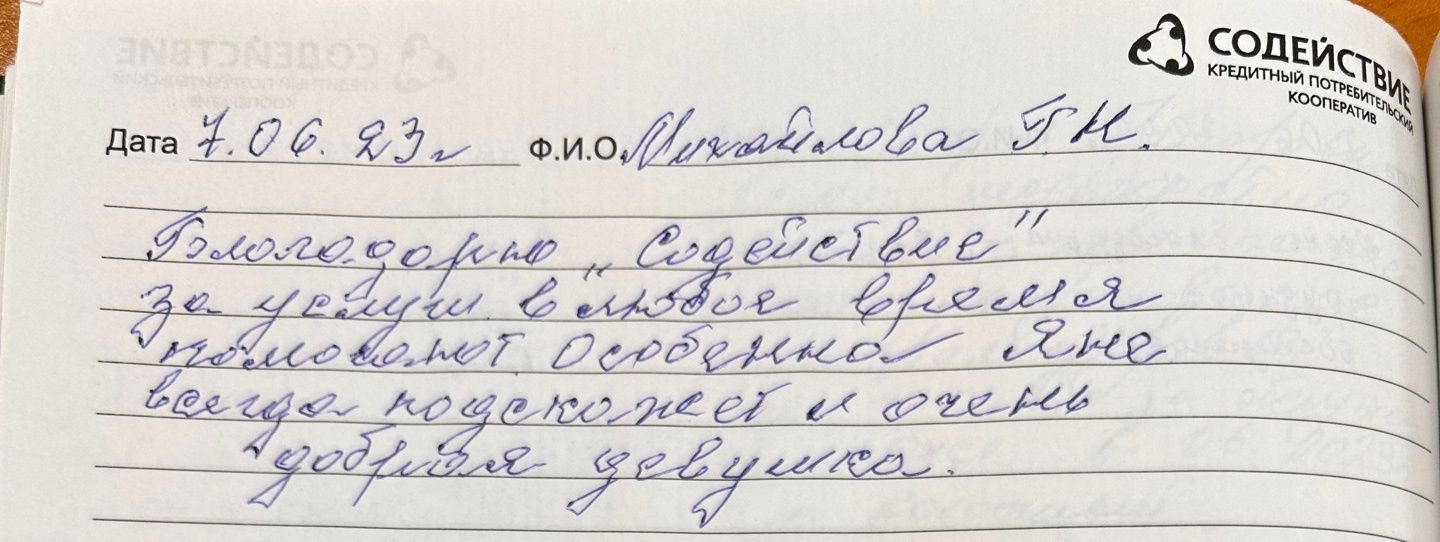 СОДЕЙСТВИЕ
КРЕДИТНЫЙ ПОТРЕБИТЕЛЬСКИЙ
КООПЕРАТИВ
Дата 7.06.23г Ф.И.О. Михайлова Г.Н.
Благодарю „Содействие"
за услуги в любое время
помогают особенно Яна
всегда подскажет и очень
добрая девушка.